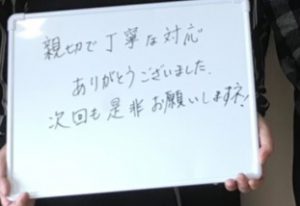 親切で丁寧な対応
ありがとうございました.
次回も是非お願いしますネ!